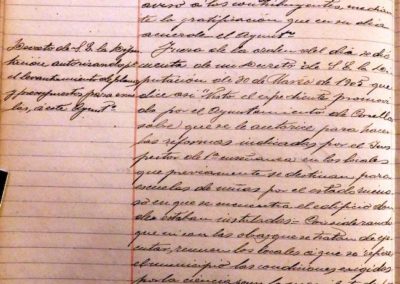 aviso á los contribuyentes median-
te la gratificación que en su dia
acuerde el Ayunt.º
Decreto de S. E. la Dipu-
tación, autorizando p.ª
el levantamiento de planos
y presupuestos para escue-
las, á este Ayunt.º
Fuera de la orden del dia se dió
cuenta de un Decreto de S. E. la Di-
putación de 30 de Marzo de 1905 que
dice así "Visto el expediente promovi-
do por el Ayuntamiento de Corella
sobre que se le autorice para hacer
las reformas indicadas por el Ins-
pector de 1ª enseñanza en los locales
que previamente se destinan para
escuelas de niños por el estado ruino-
so en que se encuentra el edificio don-
de estaban instalados = Considerando
que si con las obras que se tratan de eje-
cutar, reunen los locales á que se refiere
el municipio las condiciones exigidas
por la ciencia